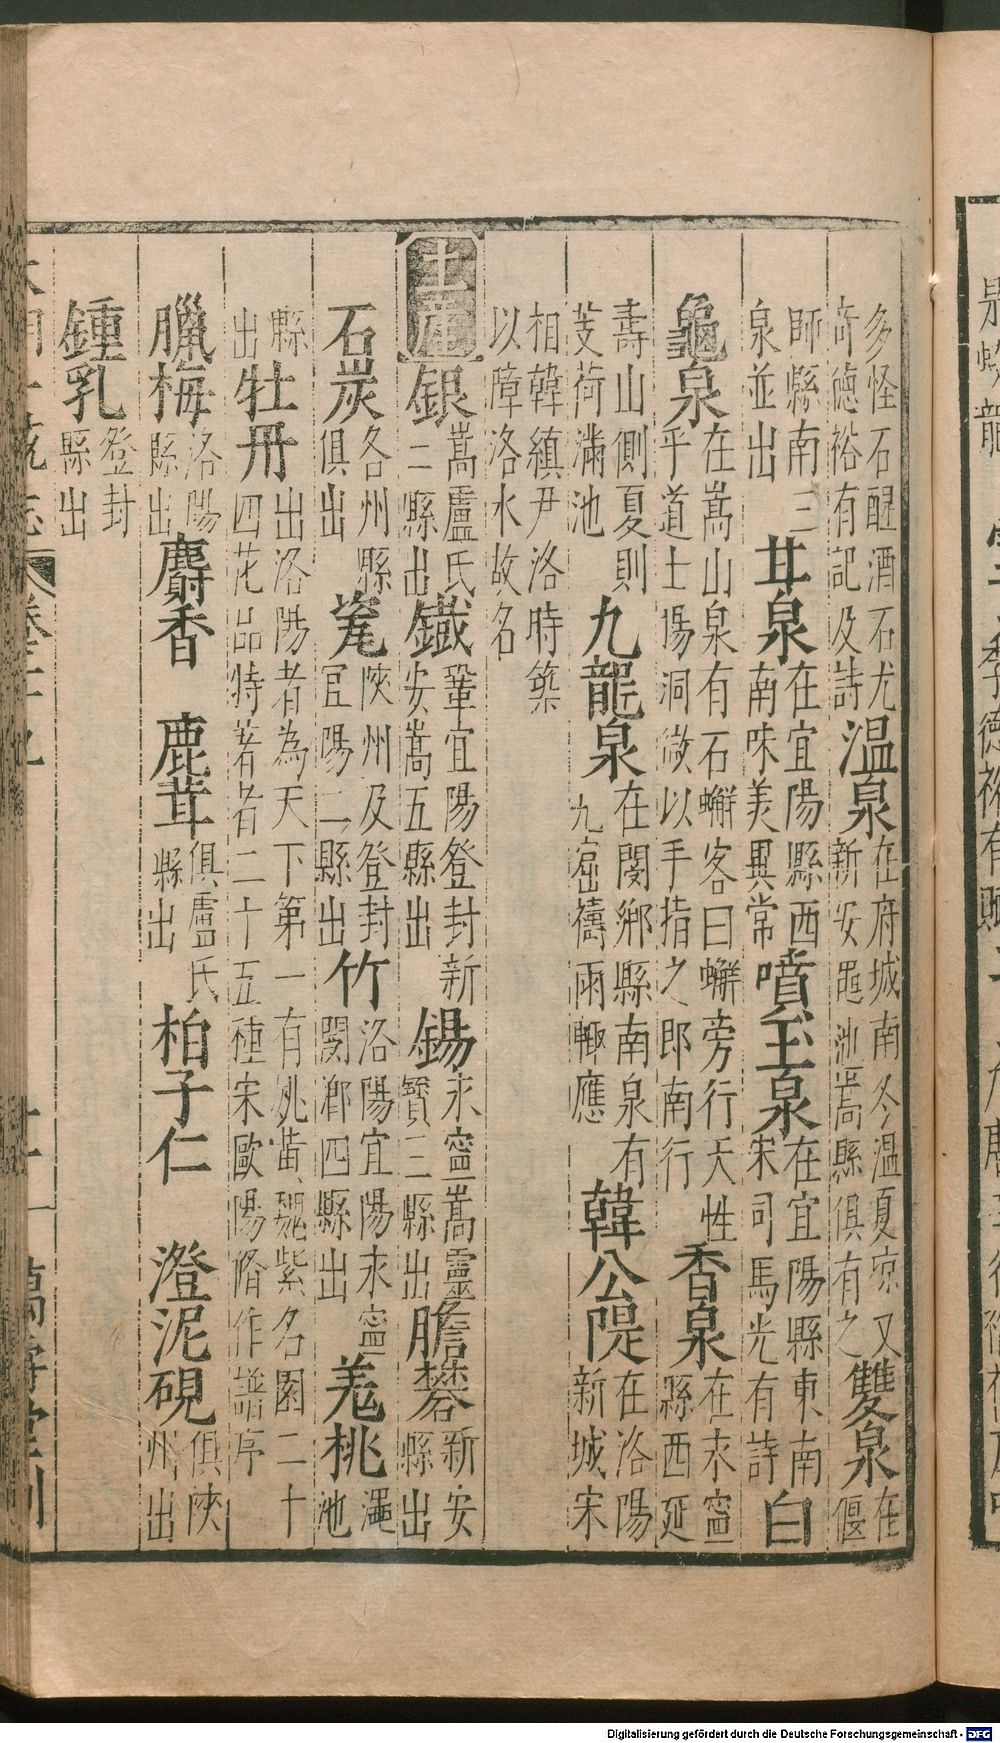 多怪石醒酒石尤
奇德裕有記及詩溫泉在府城南冬溫夏涼又
新安黽池嵩縣俱有之雙泉在
偃
師縣南三
泉並出甘泉在宜陽縣西
南味美異常噴玉泉在宜陽縣東南
宋司馬光有詩白
龜泉在嵩山泉有石蠏客曰蠏旁行天性
乎道士楊洞微以手指之即南行香泉在永寧
縣西延
壽山側夏則
芰荷滿池九龍泉在閿鄉縣南泉有
九窟禱雨輒應韓公隄在洛陽
新城宋
相韓縝尹洛時築
以障洛水故名
土產銀嵩盧氏
二縣出鐵鞏宜陽登封新
安嵩五縣出錫永寧嵩靈
寶三縣出膽礬新安
縣出
石炭各州縣
俱出瓷陝州及登封
宜陽二縣出竹洛陽宜陽永寧
閿鄉四縣出羗桃澠
池
縣
出牡丹出洛陽者為天下第一有姚黃魏紫名園二十
四花品特著者二十五種宋歐陽脩作譜序
臘梅洛陽
縣出麝香 鹿茸俱盧氏
縣出柏子仁 澄泥硯俱陝
州出
鍾乳登封
縣出
Digitalisierung gefördert durch die Deutsche Forschungsgemeinschaft - DFG